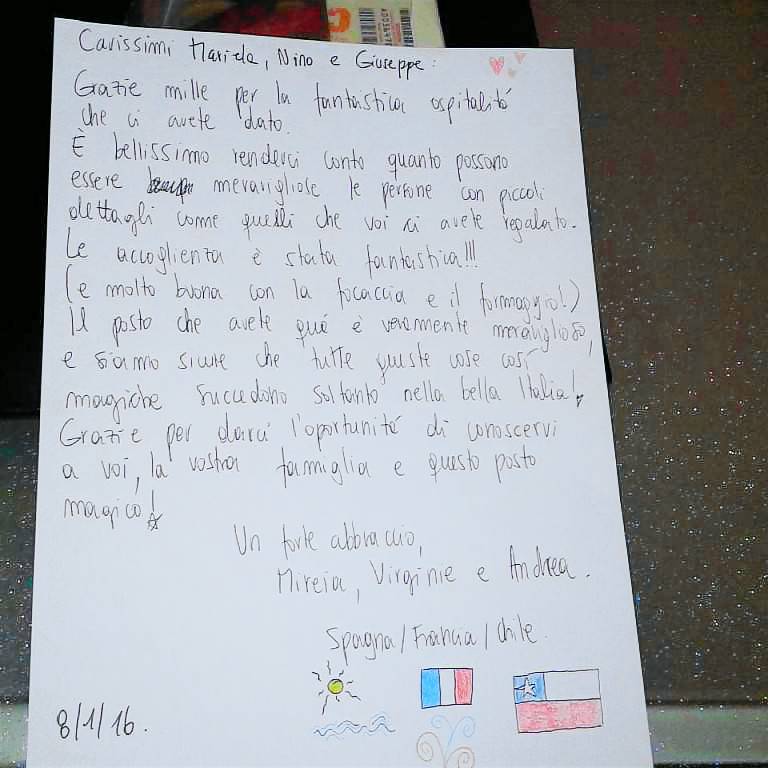 Carissimi Mariela, Nino e Giuseppe:
Grazie mille per la fantastica ospitalitá
che ci avete dato.
È bellissimo renderci conto quanto possono
essere meravigliose le persone con piccoli
dettagli come quelli che voi ci avete regalato.
Le accoglienza è stata fantastica!!!
(e molto buona con la focaccia e il formaggio!)
Il posto che avete quá è veramente meraviglioso,
e siamo sicure che tutte queste cose così
magiche succedono soltanto nella bella Italia!
Grazie per darci l'opportunitá di conoscervi
a voi, la vostra famiglia e questo posto
magico!
Un forte abbraccio,
Mireia, Virginie e Andrea.
Spagna/Francia/Chile.
8/1/16.